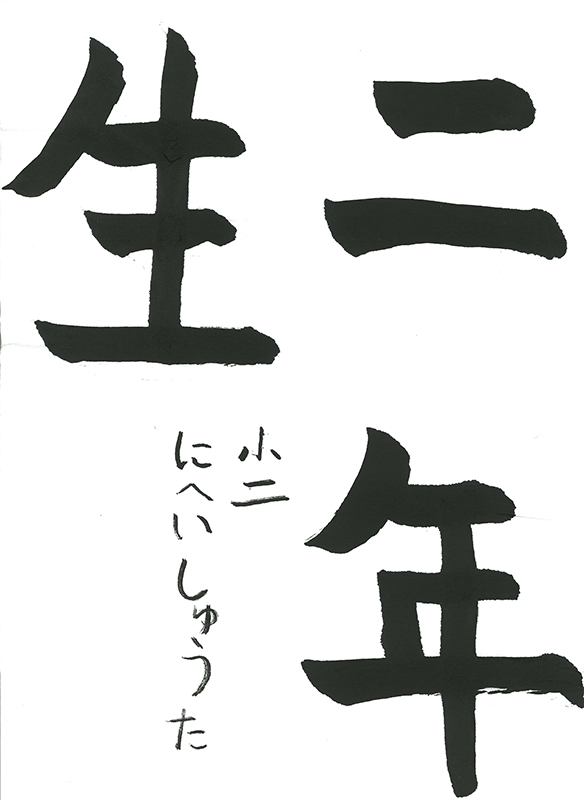 二年
生
小二
にへいしゅうた